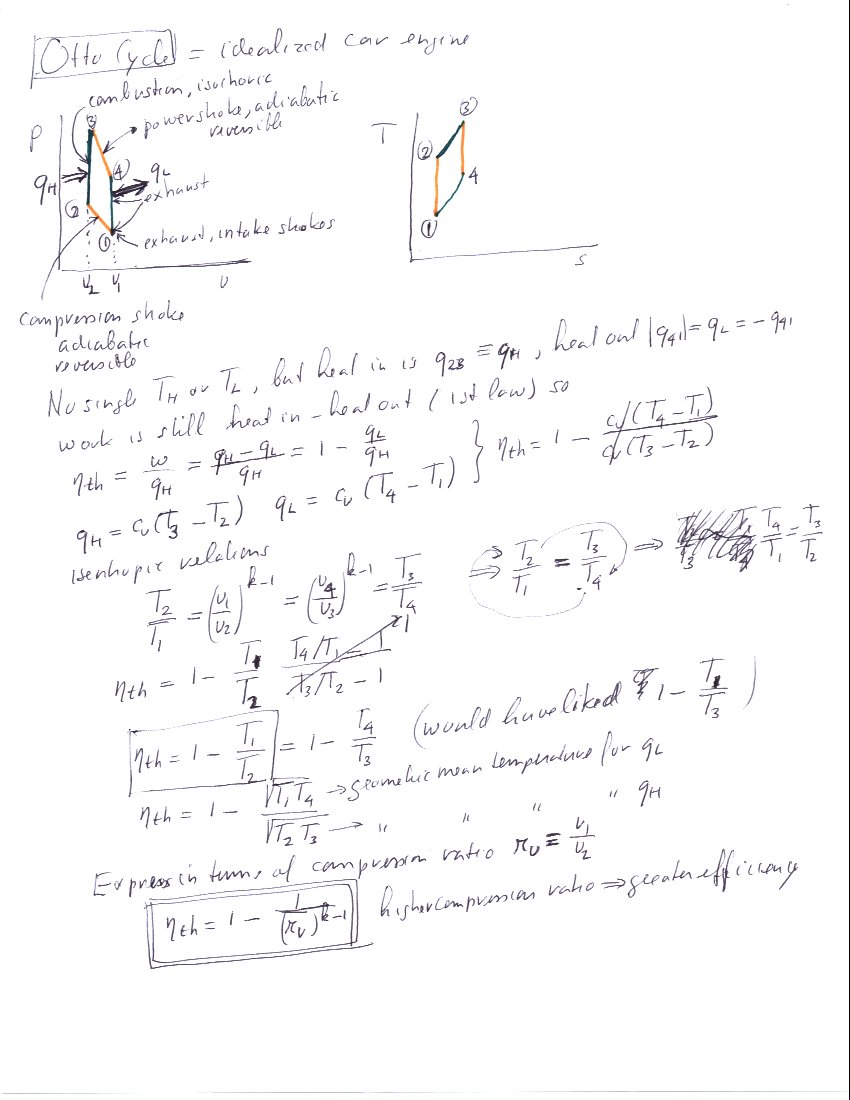 Otto Cycle = idealized car engine
combustion, isochoric
③
power stroke, adiabatic
reversible
P
q_H
④
q_L
exhaust
②
①
exhaust, intake strokes
v₂ v₁ v
compression stroke
adiabatic
reversible
T
③
②
4
①
s
No single T_H or T_L, but heat in is q₂₃ ≡ q_H, heat out |q₄₁| = q_L = -q₄₁
work is still heat in - heat out (1st law) so
η_th = w/q_H = (q_H - q_L)/q_H = 1 - q_L/q_H } η_th = 1 - c_v(T₄ - T₁)/c_v(T₃ - T₂)
q_H = c_v(T₃ - T₂) q_L = c_v(T₄ - T₁)
isentropic relations
T₂/T₁ = (v₁/v₂)^(k-1) = (v₄/v₃)^(k-1) = T₃/T₄ ⇒ T₂/T₁ = T₃/T₄ ⇒ T₄/T₁ = T₃/T₂
η_th = 1 - T₁/T₂ (T₄/T₁ - 1)/(T₃/T₂ - 1) 1
η_th = 1 - T₁/T₂ = 1 - T₄/T₃ (would have liked 1 - T₁/T₃)
η_th = 1 - √(T₁T₄)/√(T₂T₃) → geometric mean temperature for q_L
→ " " " " q_H
Express in terms of compression ratio r_v ≡ v₁/v₂
η_th = 1 - 1/(r_v)^(k-1) higher compression ratio ⇒ greater efficiency